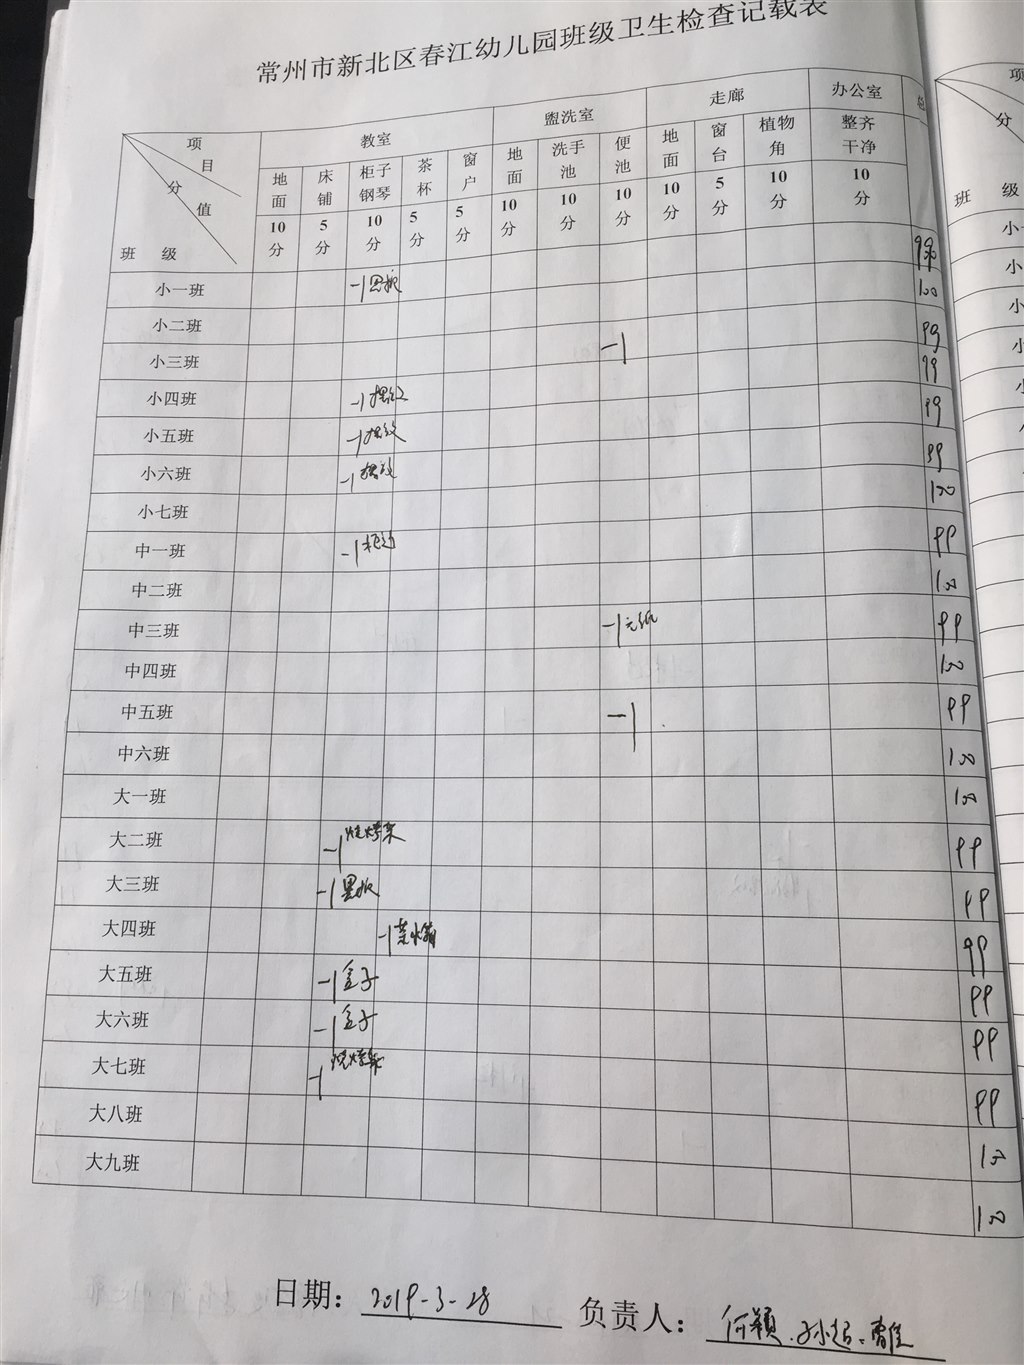 常州市新北区春江幼儿园班级卫生检查记载表
项目 分值 班级 教室 盥洗室 走廊 办公室
地面 床铺 柜子钢琴 茶杯 窗户 地面 洗手池 便池 地面 窗台 植物角 整齐干净
10分 5分 10分 5分 5分 10分 10分 10分 10分 5分 10分 10分
小一班 -1黑板 99
小二班 100
小三班 -1 99
小四班 -1 99
小五班 -1 99
小六班 -1 99
小七班 100
中一班 -1 99
中二班 100
中三班 -1无纸 99
中四班 100
中五班 -1 99
中六班 100
大一班 100
大二班 -1烧烤架 99
大三班 -1黑板 99
大四班 -1茶水桶 99
大五班 -1盒子 99
大六班 -1盒子 99
大七班 -1烧烤架 99
大八班 100
大九班 100
日期：2019-3-28 负责人：何颖、孙超、曹佳
项
分
班 级
小一
小
小
小
小